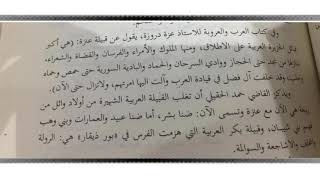 وفي كتاب العرب والعروبة للاستاذ عزة دروزة، يقول عن قبيلة عنزة: (هي أكبر
قبائل الجزيرة العربية على الاطلاق، ومنها الملوك والأمراء والفرسان والقضاة والشعراء،
منازلها من نجد حتى الحجاز ووادي السرحان والحماد والبادية السورية حتى حمص وحماه
وحلب وقد خلفت آل فضل في قيادة العرب وآلت اليها امرتهم، ولاتزال حتى الآن).
ويذكر القاضي حمد الحقيل أن تغلب القبيلة العربية الشهيرة من أولاد وائل من
ربيعة هي الآن مع عنزة وتسمى الآن: ضنا بشر، أما ضنا عبيد والعمارات وبني وهب
فهم بني شيبان، وقبيلة بكر العربية التي هزمت الفرس في «يور ذيقار» هي: الرولة
والمحلف والأشاجعة والسوالمة.